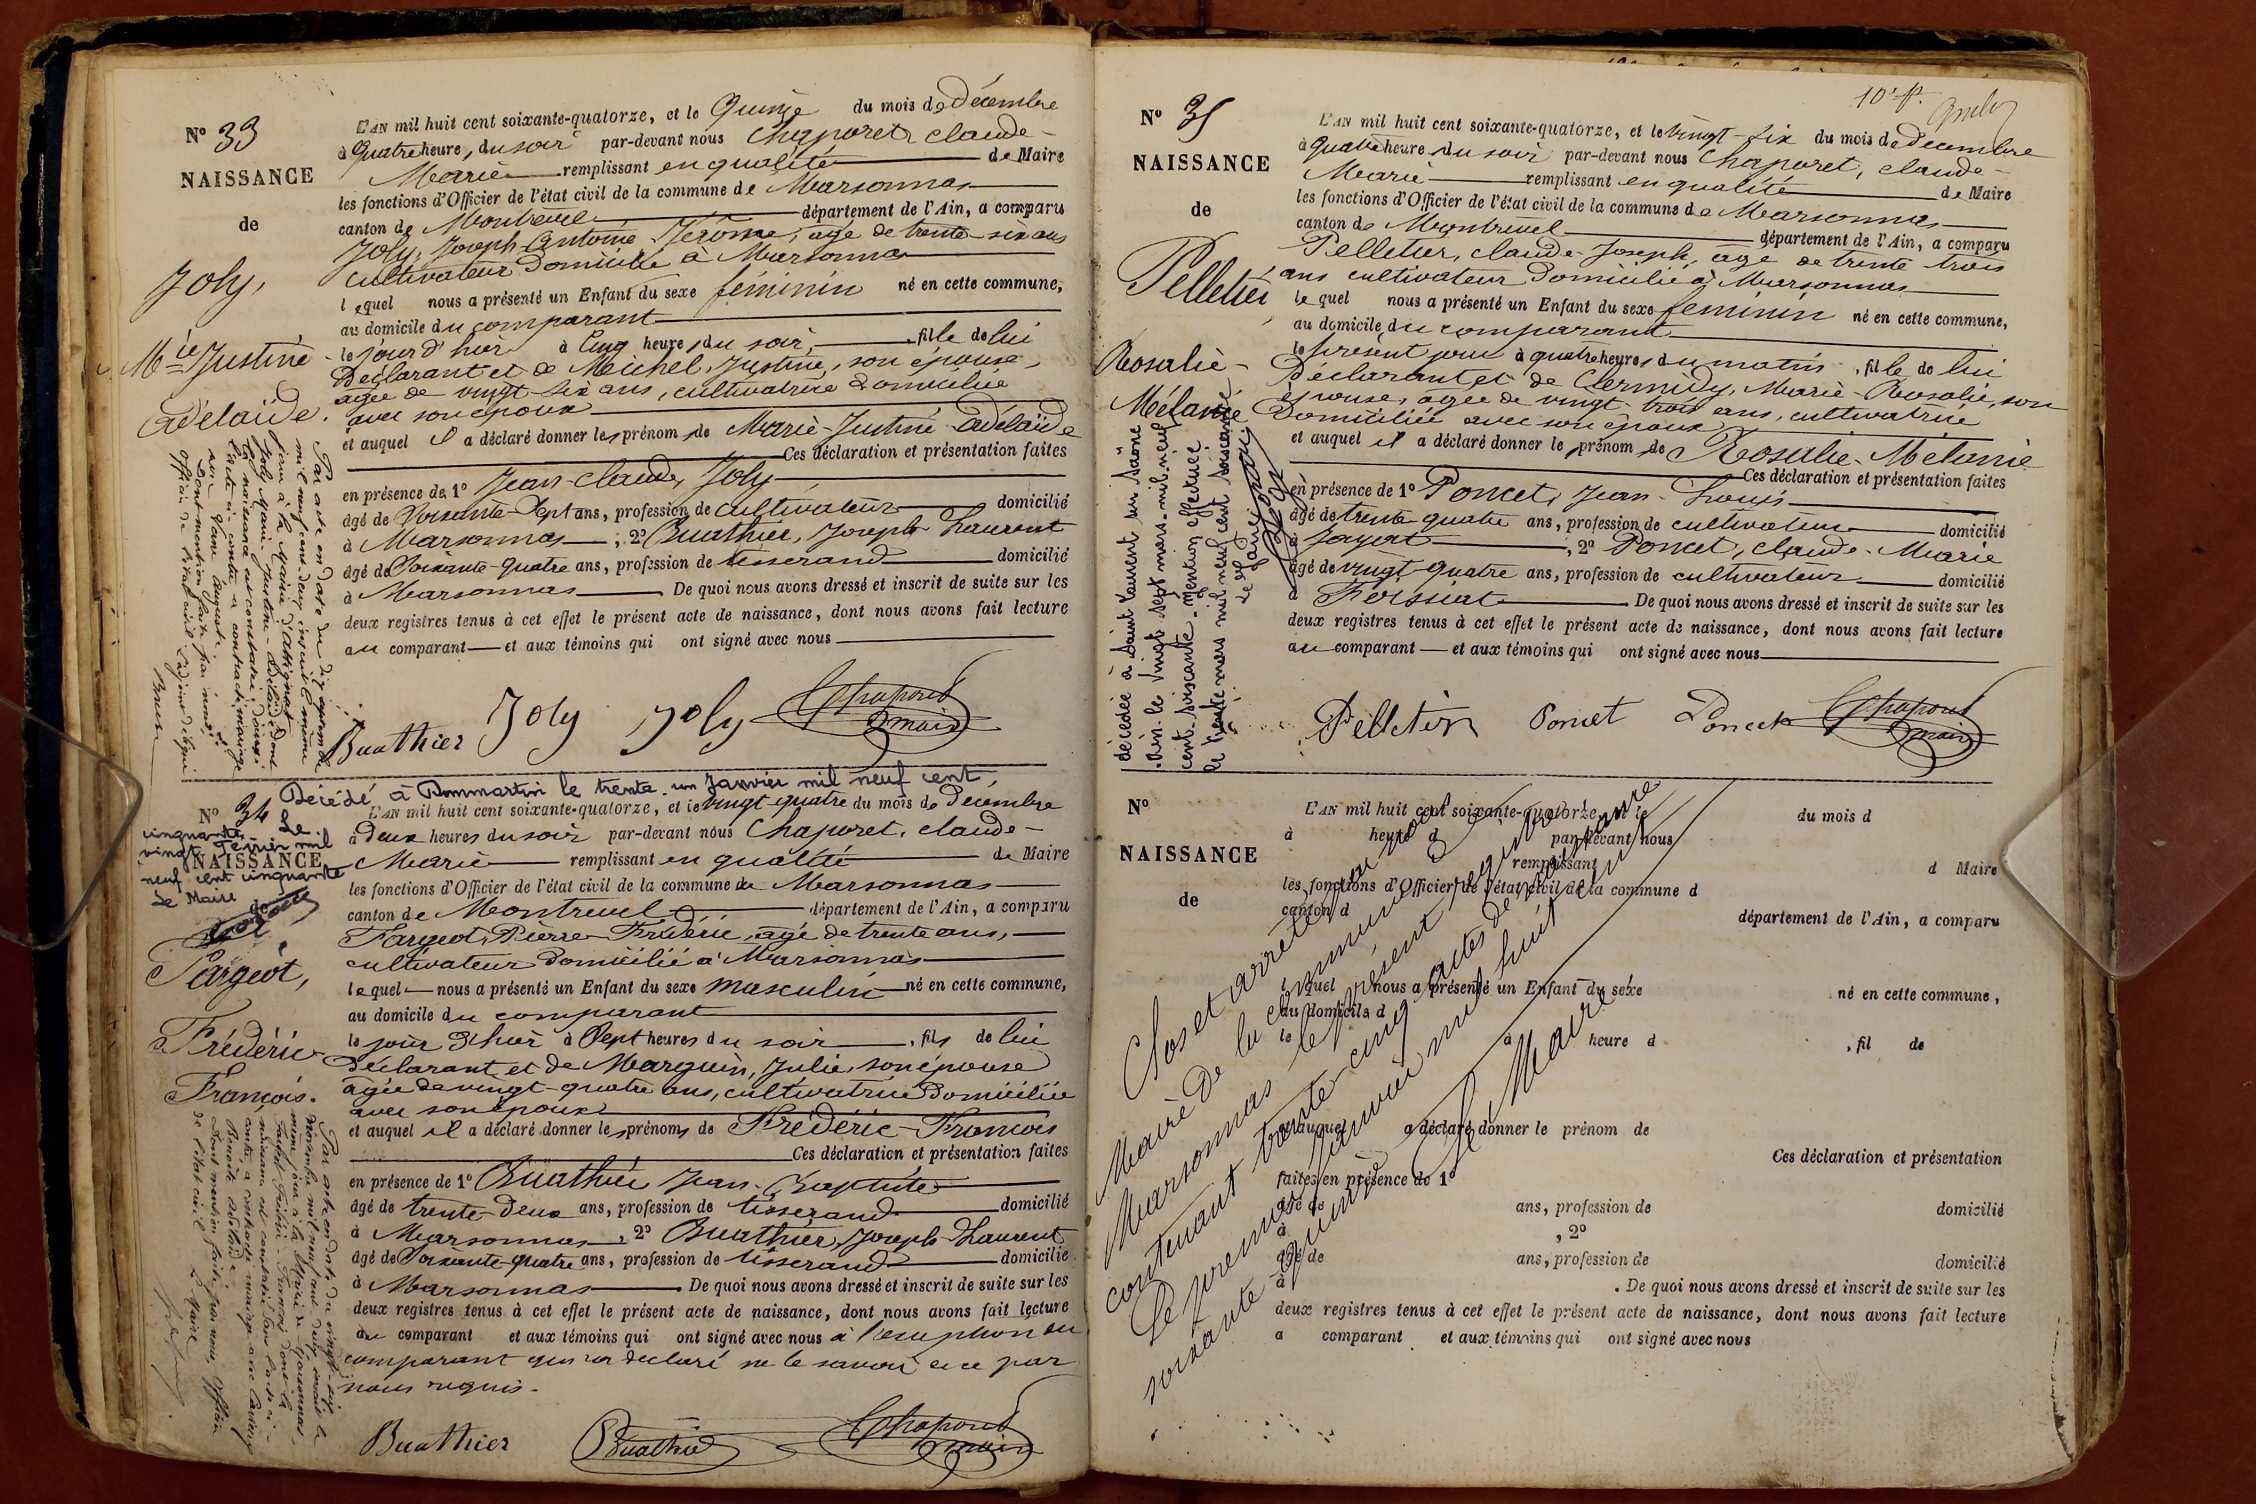 Nº 33
NAISSANCE
de
Joly,
Mie Justine
Adélaïde.
L'AN mil huit cent soixante-quatorze, et le Quinze du mois de Décembre
à Quatre heure, du soir par-devant nous Chaporet claude-
Marie remplissant en qualité de Maire
les fonctions d'Officier de l'état civil de la commune de Marsonnas
canton de Montrevel département de l'Ain, a comparu
Joly, Joseph Antoine Jérôme, âgé de trente-six ans
cultivateur Domicilié à Marsonnas
lequel nous a présenté un Enfant du sexe féminin né en cette commune,
au domicile du comparant
le jour d'hier à Cinq heure, du soir, fille de lui
Déclarant et de Michel, Justine, son épouse,
agée de vingt-six ans, cultivatrice domiciliée
avec son époux
et auquel il a déclaré donner les prénoms de Marie-Justine Adélaïde
Ces déclaration et présentation faites
en présence de 1º Jean-claude, Joly
âgé de Soixante-Sept ans, profession de cultivateur domicilié
à Marsonnas, 2º Buathier, Joseph Laurent
âgé de Soixante-quatre ans, profession de tisserand domicilié
à Marsonnas De quoi nous avons dressé et inscrit de suite sur les
deux registres tenus à cet effet le présent acte de naissance, dont nous avons fait lecture
au comparant et aux témoins qui ont signé avec nous
Buathier Joly Joly Chaporet
maire
Par acte en date du dix septembre
mil neuf cent deux inscrit le même
jour à la Mairie d'Attignat
Joly Marie-Justine-Adélaïde dont
la naissance est constatée dans
l'acte ci-contre a contracté mariage
avec
Dont mention faite par nous
officier de l'état civil l'adjoint délégué
Décédé à Dommartin le trente-un Janvier mil neuf cent
cinquante. Le
vingt Février mil
neuf cent cinquante
Le Maire
Nº 34
NAISSANCE
de
Fargeot,
Frédéric
François.
L'AN mil huit cent soixante-quatorze, et le vingt-quatre du mois de Décembre
à deux heures du soir par-devant nous Chaporet, claude-
Marie remplissant en qualité de Maire
les fonctions d'Officier de l'état civil de la commune de Marsonnas
canton de Montrevel département de l'Ain, a comparu
Fargeot, Pierre Frédéric, âgé de trente ans,
cultivateur Domicilié à Marsonnas
lequel nous a présenté un Enfant du sexe masculin né en cette commune,
au domicile du comparant
le jour d'hier à Sept heures du soir, fils de lui
Déclarant et de Marguin, Julie, son épouse
agée de vingt-quatre ans, cultivatrice Domiciliée
avec son époux
et auquel il a déclaré donner les prénoms de Frédéric-François
Ces déclaration et présentation faites
en présence de 1º Buathier Jean-Baptiste
âgé de trente-deux ans, profession de tisserand domicilié
à Marsonnas, 2º Buathier, Joseph-Laurent
âgé de Soixante-quatre ans, profession de tisserand domicilié
à Marsonnas De quoi nous avons dressé et inscrit de suite sur les
deux registres tenus à cet effet le présent acte de naissance, dont nous avons fait lecture
au comparant et aux témoins qui ont signé avec nous à l'exception du
comparant qui a déclaré ne le savoir de ce par
nous requis.
Buathier Buathier Chaporet
maire
Par acte en date du vingt-six
Novembre mil neuf cent deux inscrit le
même jour à la Mairie de Marsonnas,
Fargeot Frédéric-François dont la
naissance est constatée dans l'acte ci-
contre a contracté mariage avec
Dont mention faite par nous, officier
de l'état civil Le Maire
10e f.
Nº 35
NAISSANCE
de
Pelletier,
Rosalie-
Mélanie
L'AN mil huit cent soixante-quatorze, et le vingt-six du mois de Décembre
à Quatre heure du soir par-devant nous Chaporet, claude-
Marie remplissant en qualité de Maire
les fonctions d'Officier de l'état civil de la commune de Marsonnas
canton de Montrevel département de l'Ain, a comparu
Pelletier, claude-Joseph, âgé de trente trois
ans cultivateur Domicilié à Marsonnas
lequel nous a présenté un Enfant du sexe féminin né en cette commune,
au domicile du comparant
le présent jour à quatre heures du matin, fille de lui
Déclarant et de Cermidy, Marie-Rosalie, son
épouse, agée de vingt-trois ans, cultivatrice
Domiciliée avec son époux
et auquel il a déclaré donner le prénom de Rosalie-Mélanie
Ces déclaration et présentation faites
en présence de 1º Poncet, Jean-Louis
âgé de trente-quatre ans, profession de cultivateur domicilié
à Jayat, 2º Poncet, claude-Marie
âgé de vingt-quatre ans, profession de cultivateur domicilié
à Foissiat De quoi nous avons dressé et inscrit de suite sur les
deux registres tenus à cet effet le présent acte de naissance, dont nous avons fait lecture
au comparant et aux témoins qui ont signé avec nous
Pelletier Poncet Poncet Chaporet
maire
décédée à Saint Laurent sur Saône
Ain le vingt sept mars mil neuf
cent soixante. Mention effectuée
le trente mars mil neuf cent soixante
Nº
NAISSANCE
de
L'AN mil huit cent soixante-quatorze, et le du mois d
à heure d par-devant nous
remplissant d Maire
les fonctions d'Officier de l'état civil de la commune d
canton d département de l'Ain, a comparu
lequel nous a présenté un Enfant du sexe né en cette commune,
au domicile d
le à heure d, fil de
et auquel a déclaré donner le prénom de
Ces déclaration et présentation
faites en présence de 1º
âgé de ans, profession de domicilié
à, 2º
âgé de ans, profession de domicilié
à. De quoi nous avons dressé et inscrit de suite sur les
deux registres tenus à cet effet le présent acte de naissance, dont nous avons fait lecture
a comparant et aux témoins qui ont signé avec nous
Clos et arrêté par nous
Maire de la commune de
Marsonnas le présent registre
contenant trente-cinq actes de naissance
Le premier Janvier mil huit cent
soixante quinze Le Maire